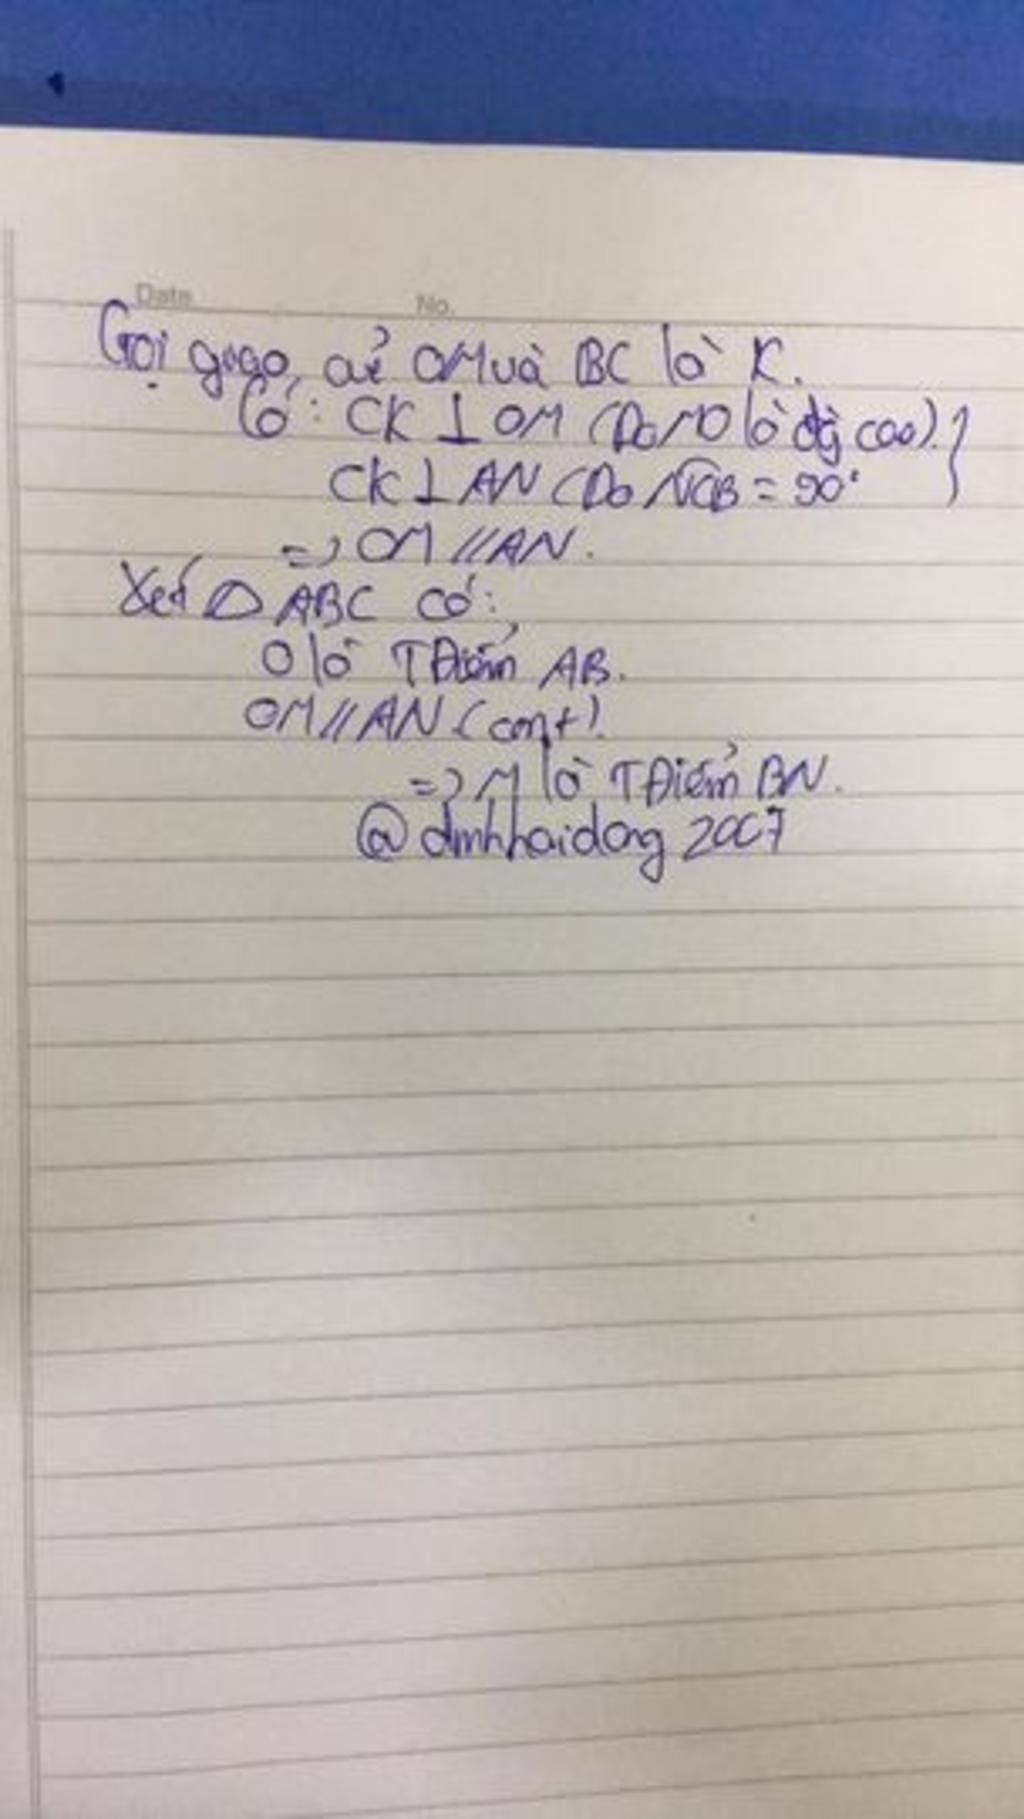 Date No.
Gọi giao của OM và BC là K.
Có: CK ⊥ OM (Do MO là đg cao).}
CK ⊥ AN (Do NCB = 90°
=> OM // AN.
Xét △ ABC có:
O là TĐiểm AB.
OM // AN (cmt).
=> M là TĐiểm BN.
@dinhhaidong 2007